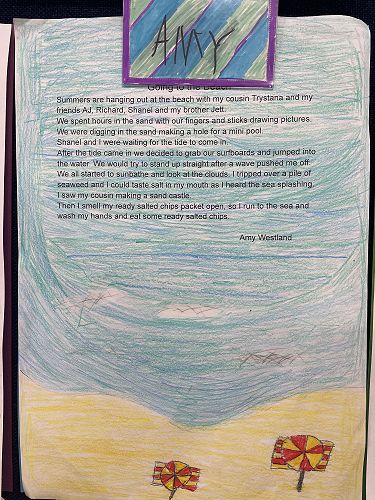 AMY
Going to the Beach
Summers are hanging out at the beach with my cousin Trystana and my
friends AJ, Richard, Shanel and my brother Jett.
We spent hours in the sand with our fingers and sticks drawing pictures.
We were digging in the sand making a hole for a mini pool.
Shanel and I were waiting for the tide to come in.
After the tide came in we decided to grab our surfboards and jumped into
the water. We would try to stand up straight after a wave pushed me off.
We all started to sunbathe and look at the clouds. I tripped over a pile of
seaweed and I could taste salt in my mouth as I heard the sea splashing.
I saw my cousin making a sand castle.
Then I smell my ready salted chips packet open, so I run to the sea and
wash my hands and eat some ready salted chips.
Amy Westland